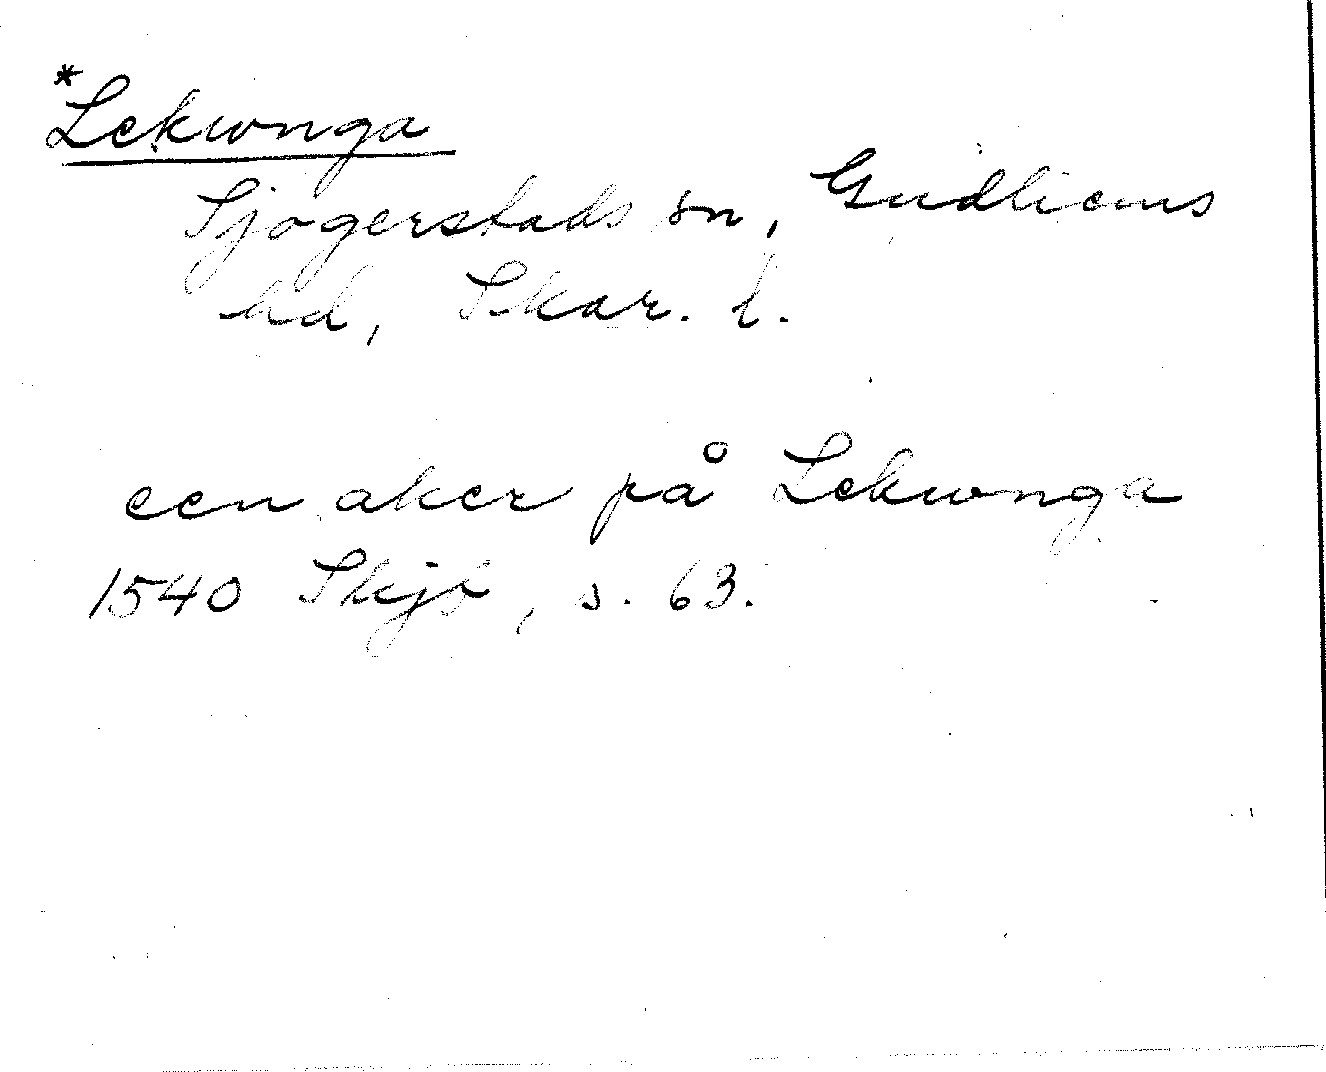 *Lekwnga
Sjogerstads sn, Gudhems
hd, Skar. l.
een aker på Lekwnga
1540 Skjb, s. 63.